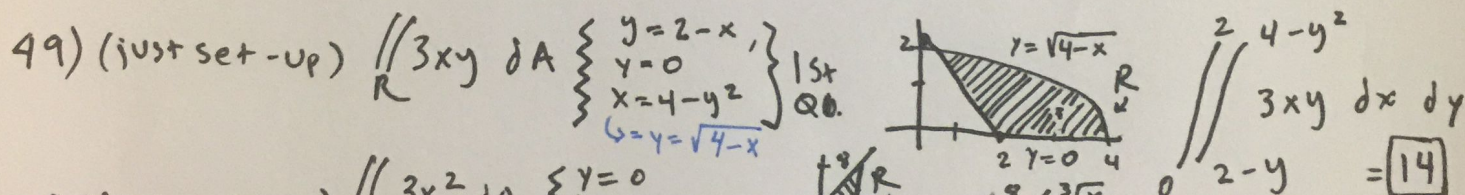 49) (just set-up) ∬ 3xy dA { y=2-x, y=0 x=4-y² } 1st QD.
R
↳ = y = √4-x
2 y=√4-x R
2 y=0 4
2 4-y²
∬ 3xy dx dy
0 2-y = 14
∬ 3x² { y=0
8 R